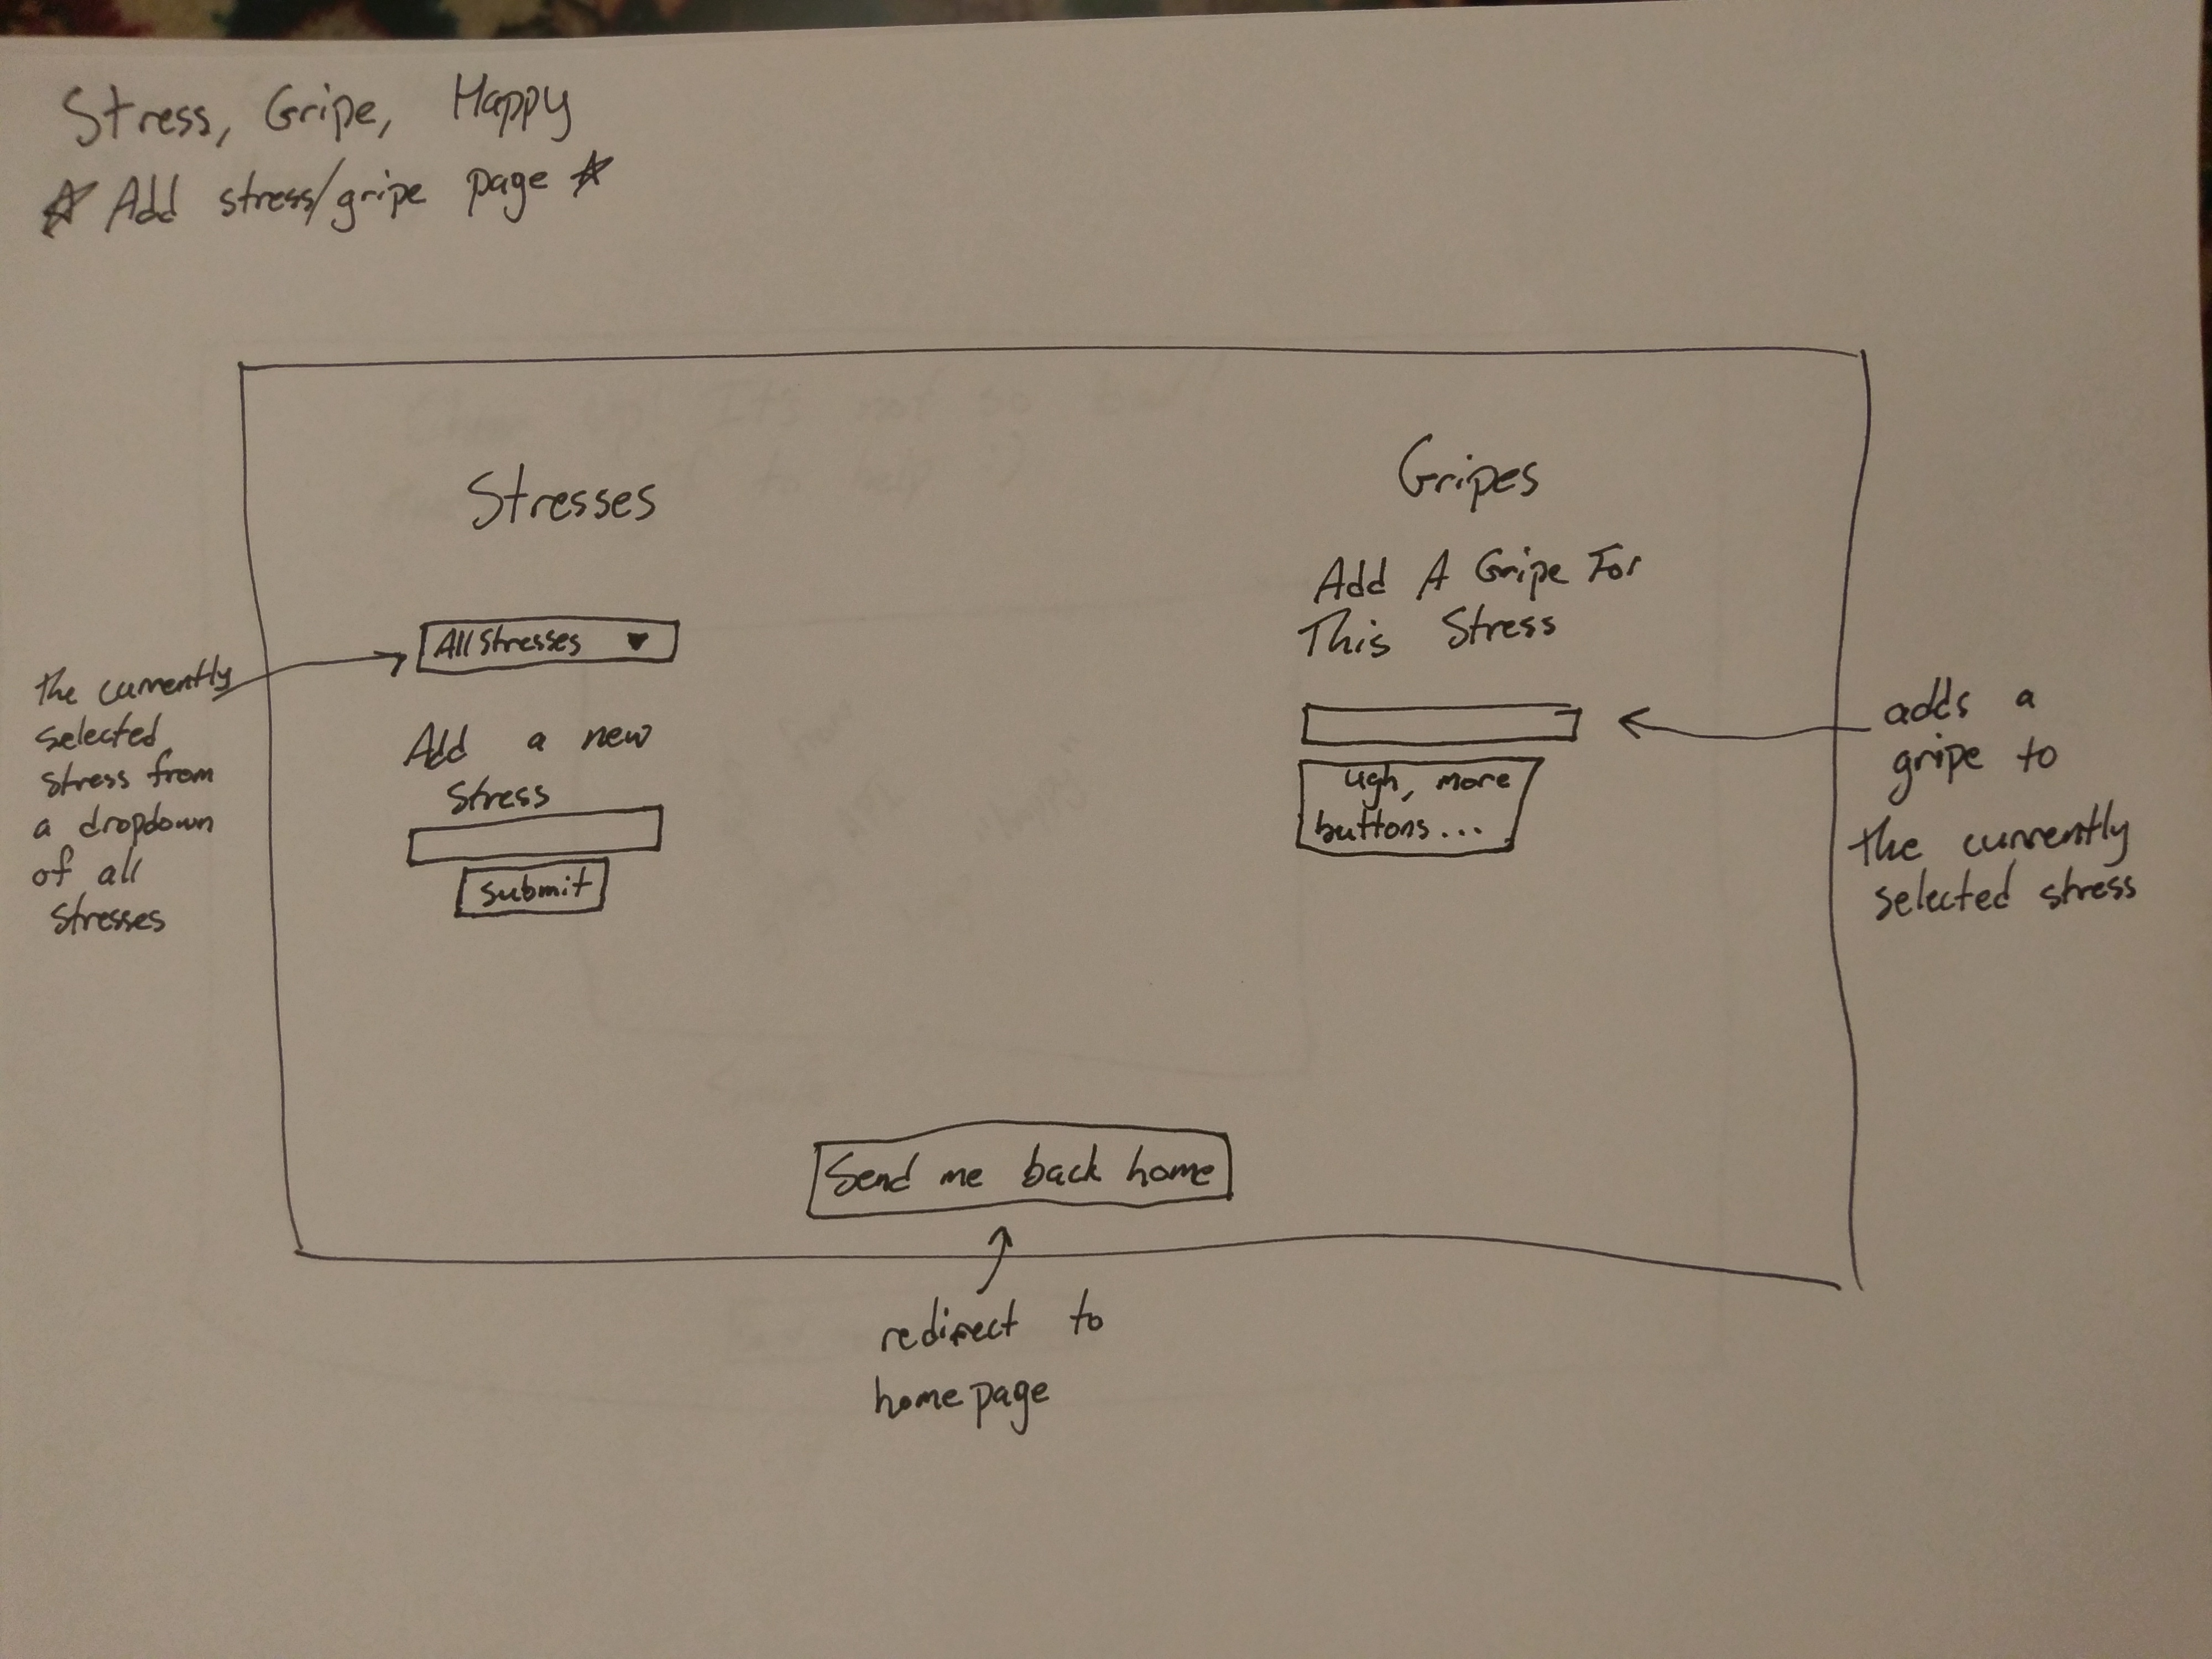 Stress, Gripe, Happy
☆ Add stress/gripe page ☆
Stresses
All stresses ▼
the currently
selected
stress from
a dropdown
of all
stresses
Add a new
stress
submit
Gripes
Add A Gripe For
This Stress
ugh, more
buttons...
adds a
gripe to
the currently
selected stress
Send me back home
redirect to
homepage